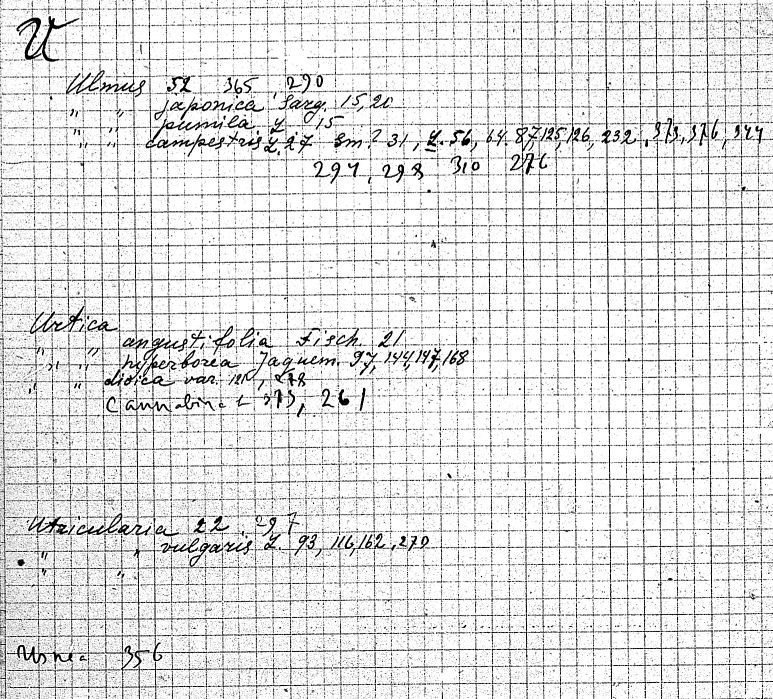 U
Ulmus 52 365, 290
" " japonica Sarg. 15, 20
" " pumila L. 15
" " campestris L. 27 Sm? 31, L. 56, 64. 87, 125, 126, 232, 373, 376, 344
297, 298 310 276
Urtica
" " angustifolia Fisch. 21
" " hyperborea Jaquem. 97, 144, 147, 168
" " dioica var. 278
Cannabina L 373, 261
Utricularia 22, 297
" " vulgaris L. 93, 116, 162, 279
" "
Usnea 356